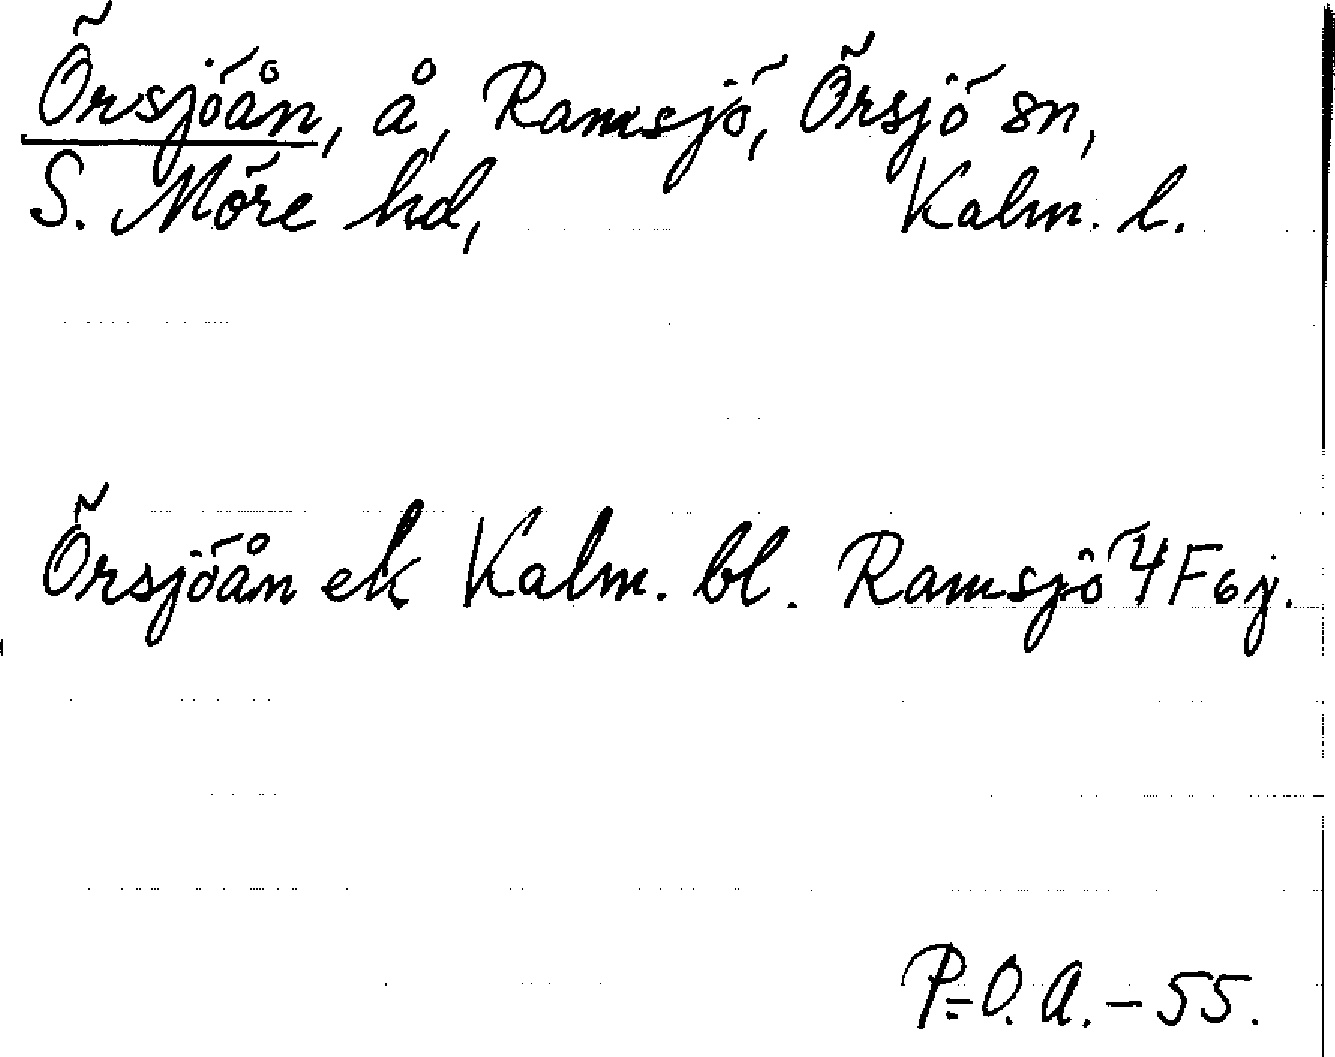 Örsjöån, å, Ramsjö, Örsjö sn,
S. Möre hd, Kalm. l.
Örsjöån ek Kalm. bl. Ramsjö 4F6j.
P-O. A. - 55.